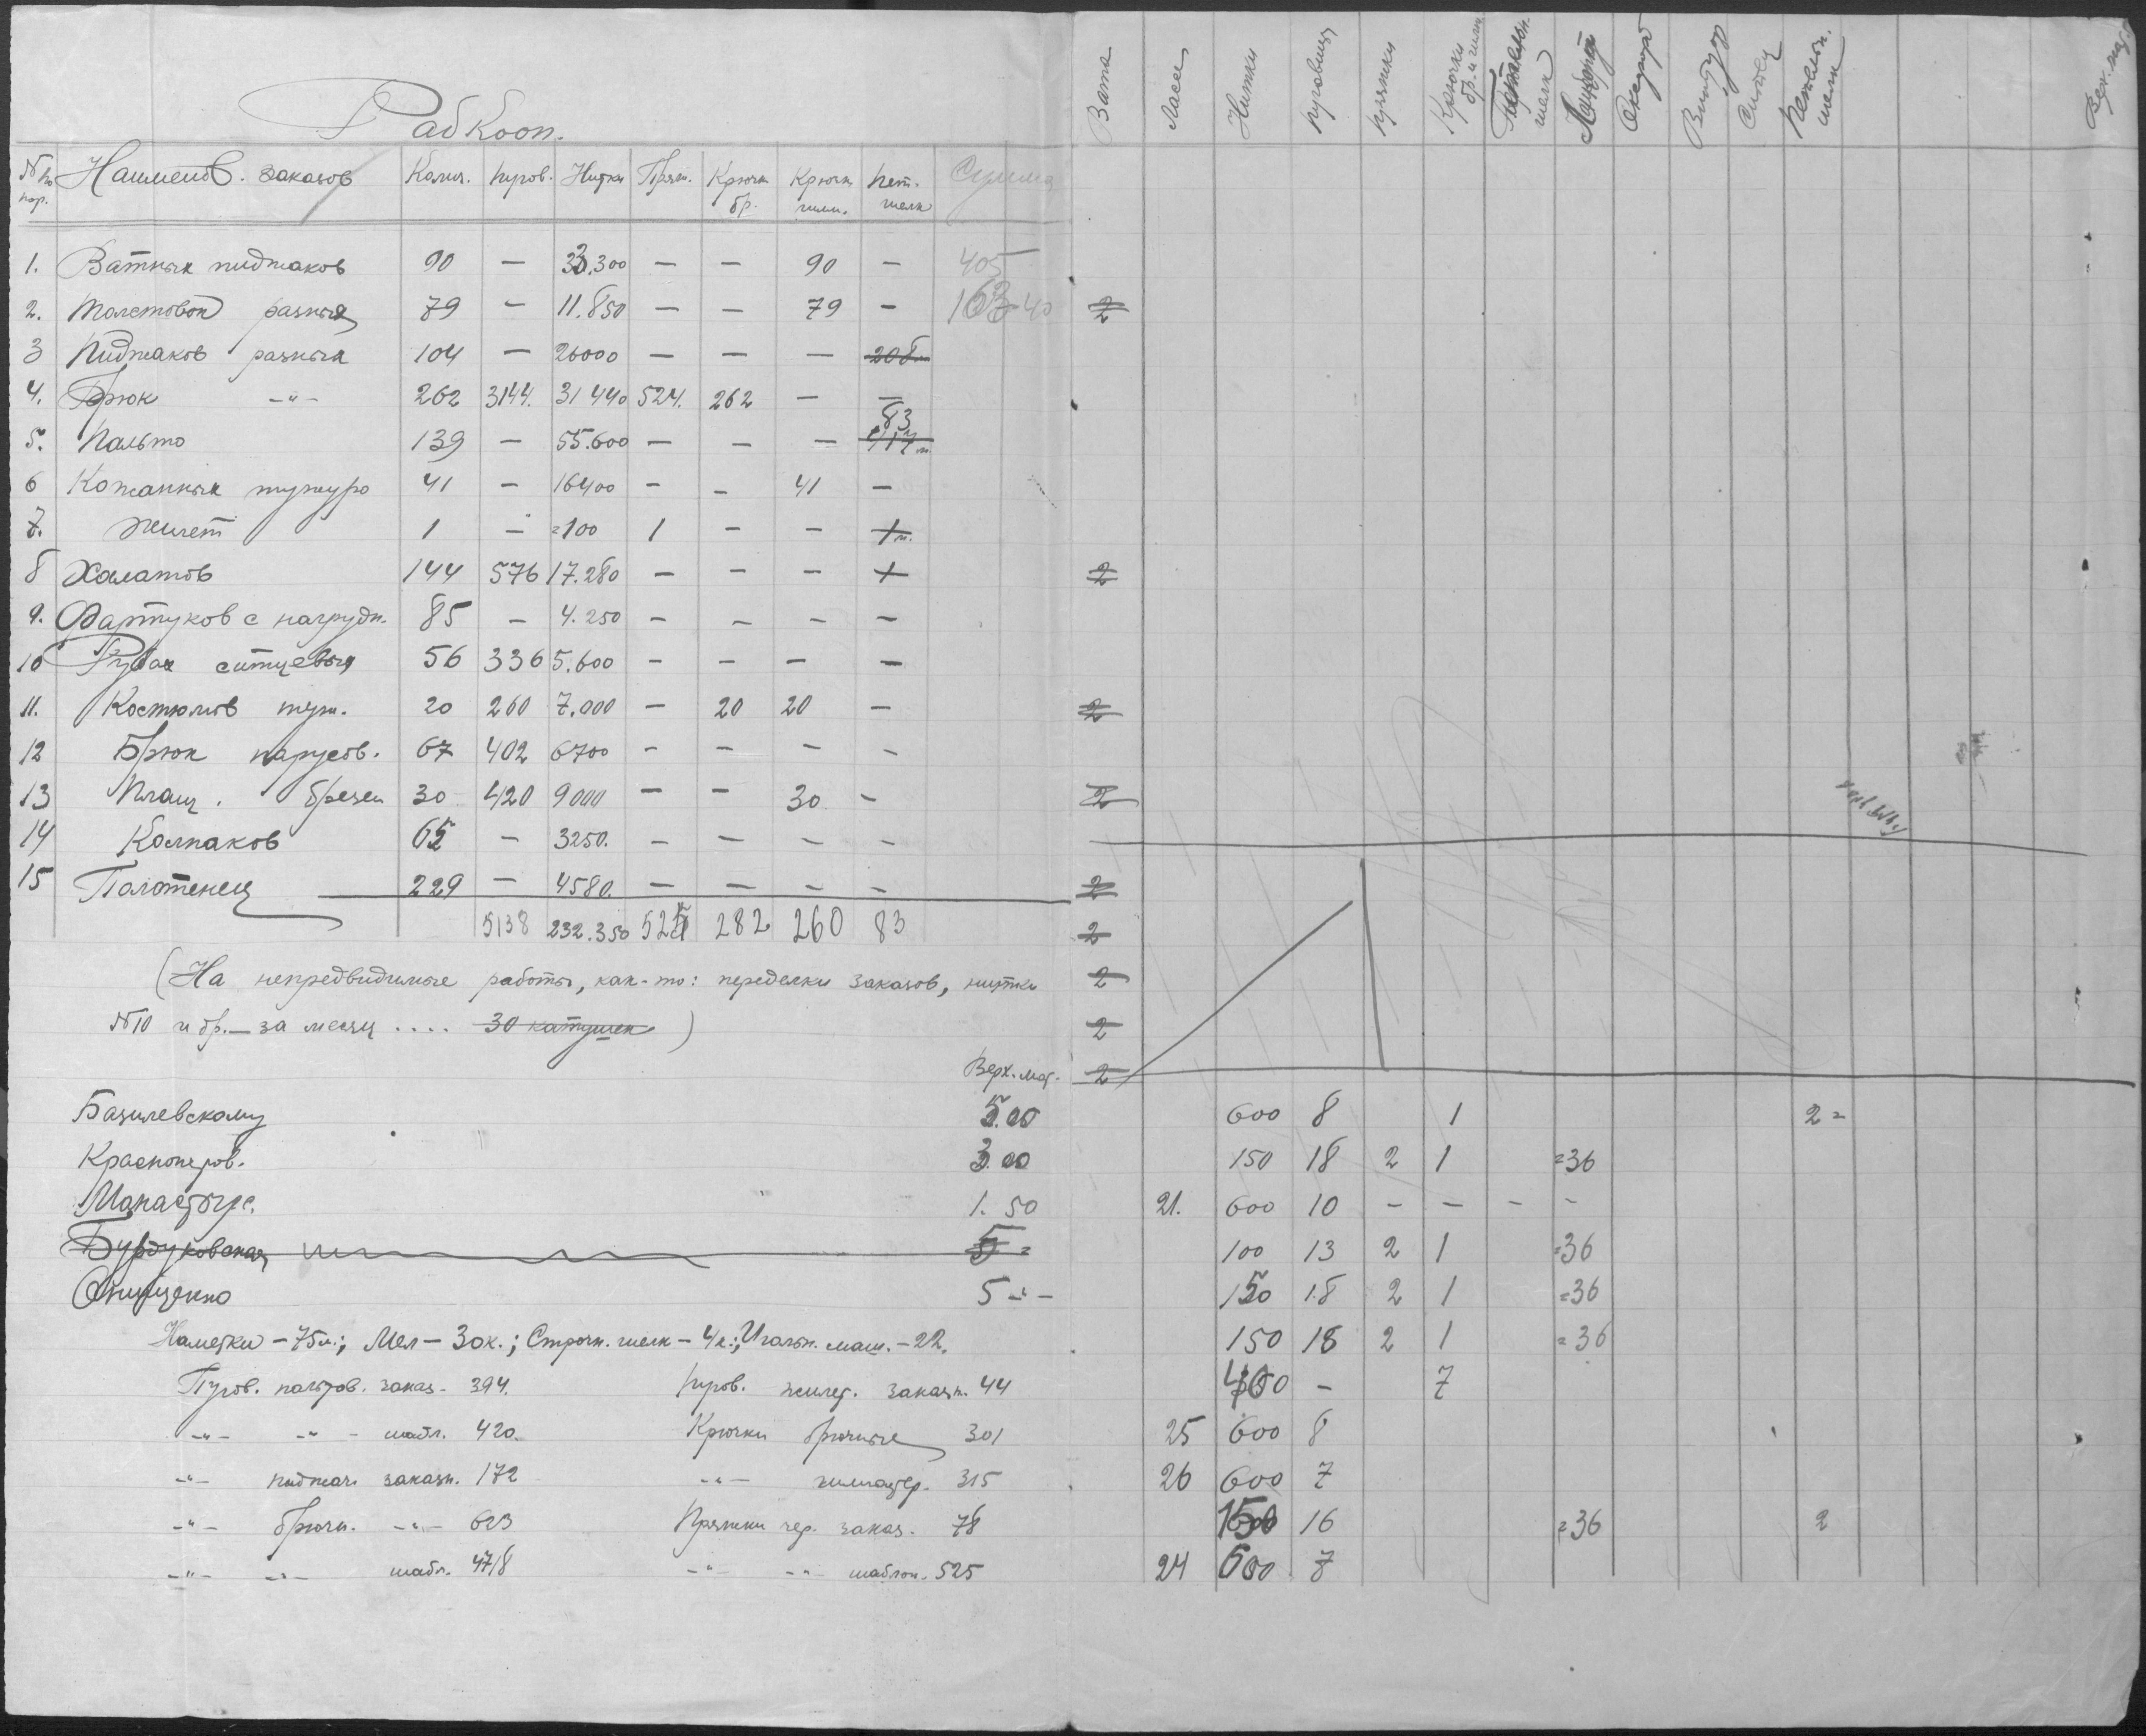 Рабкооп.
№ по пор. Наименов. заказов Колич. пугов. Нитки Пряж. Крючк. бр. Крючк. гимн. пет. шелк Сумма
1. Ватных пиджаков 90 — 33.300 — — 90 — 405
2. Толстовок разных 79 — 11.850 — — 79 — 163-40
3 Пиджаков разных 104 — 26000 — — — 208
4. Брюк -"- 262 3144. 31440 524. 262 — —
5. Пальто 139 — 55.600 — — — 83
6 Кожанных тужуро 41 — 16400 — — 41 —
7. Жилет 1 — =100 1 — — 1 м.
8 Халатов 144 576 17.280 — — — +
9. Фартуков с нагрудн. 85 — 4.250 — — — —
10 Рубах ситцевых 56 336 5.600 — — — —
11. Костюмов туж. 20 260 7.000 — 20 20 —
12 Брюк парусов. 67 402 6700 — — — —
13 Плащ. брезен 30 420 9000 — — 30 —
14 Колпаков 65 — 3250. — — — —
15 Полотенец 229 — 4580. — — — —
5138 232.350 525 282 260 83
(На непредвидимые работы, как-то: переделки заказов, нитки
№10 и др. — за месяц .... 30 катушек)
Верх. мат.
Базилевскому 5.00
Краснопёров. 3.00
Манастырс. 1.50
Бурдуковская 5 =
Онищенко 5 -"-
Наметки — 75 м.; Мел — 30 к.; Строчн. шелк — 4 к.; Игольн. маш. — 22.
Пугов. пальтов. заказ. 394. пугов. жилет. заказн. 44
-"- -"- шабл. 420. Крючки брючные 301
-"- пиджач. заказн. 172 -"- гимнастер. 315
-"- брючн. -"- 623 Пряжки чер. заказ. 78
-"- -"- шабл. 4718 -"- -"- шаблон. 525
Вата Ласс Нитки пуговицы пряжки Крючки бр. и гимн. шелк Сатин петельн. шелк Верх. мат.
2
2
2
2
2
2
2
2
2
600 8 1 2=
150 18 2 1 =36
21. 600 10 — — — —
100 13 2 1 =36
150 18 2 1 =36
150 18 2 1 =36
400 — 7
25 600 8
26 600 7
150 16 =36 2
24 600 7